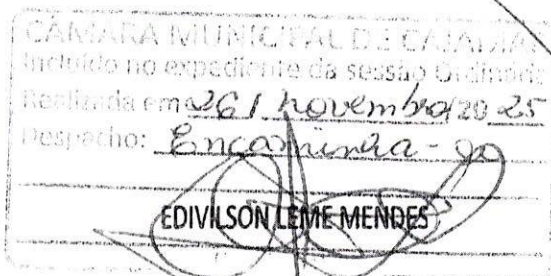 CÂMARA MUNICIPAL DE CAJAMAR
Incluído no expediente da sessão Ordinária
Realizada em 26 / novembro/20 25
Despacho: Encaminha-se
EDIVILSON LEME MENDES